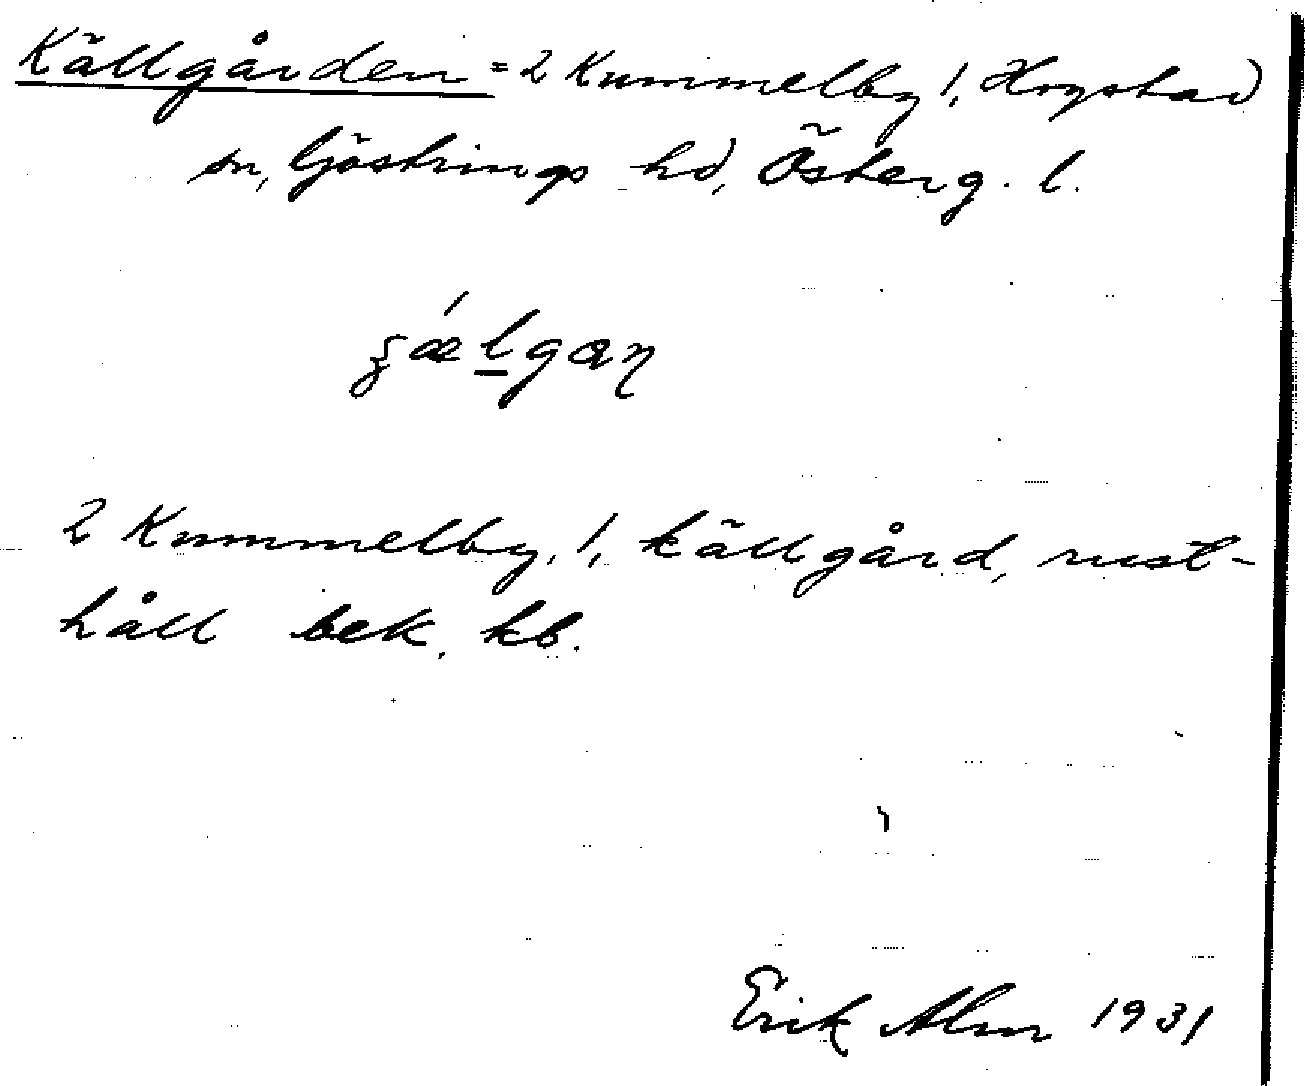 Källgården = 2 Kummelby 1, Hogstad
sn, Göstrings hd, Österg. l.
2 Kummelby, 1, källgård, rust-
håll bek. kb.
Erik Alm 1931